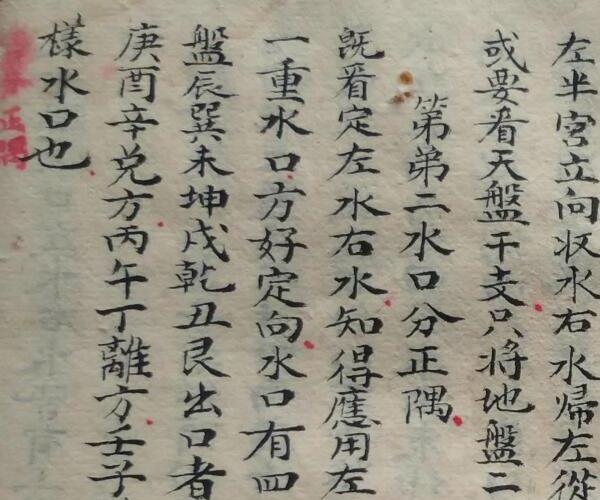 左半宮立向收水右水歸左從
或要看天盤干支只將地盤二
第弟二水口分正隅
既看定左水右水知得應用左
一重水口方好定向水口有四
盤辰巽未坤戌乾丑艮出口者
庚酉辛兌方丙午丁離方壬子
樣水口也